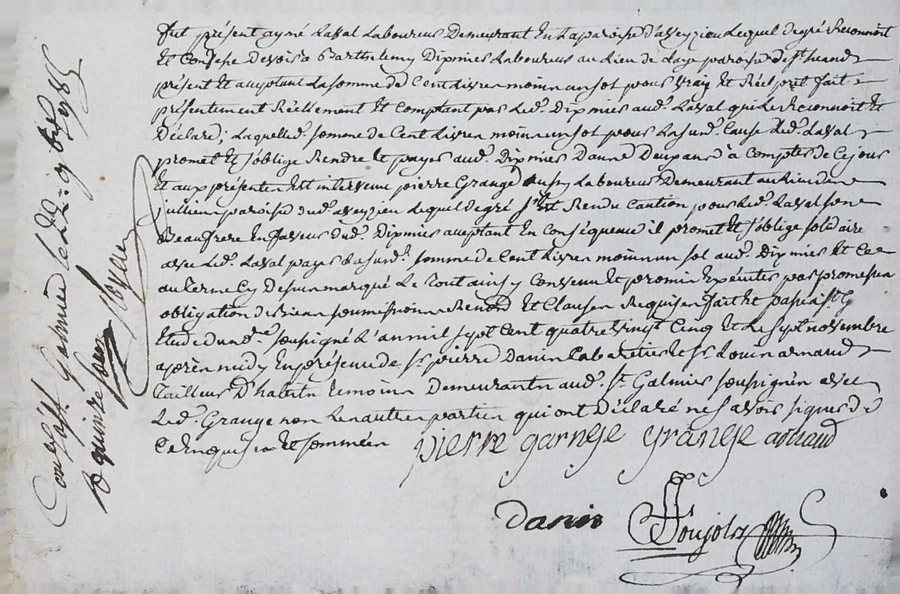 fut présent aymé Laval Laboureur Demeurant En La paroisse d'aveyzieu Lequel de gré Reconnoit
Et Confesse devoir a Barthelemy Dipmier Laboureur au Lieu de paroisse de St
présent Et acceptant La somme de Cent Livres moins un sol pour vray Et Réel pret fait
présentement Réellement Et Comptant par Led. Dipmier aud. Laval qui Le Reconnoit Et
Déclare; Laquelle somme de Cent Livres moins un sol pour La susd. Cause Led. Laval
promet Et s'oblige Rendre Et payer aud. Dipmier Dans Deux ans à Compter de Ce jour
Et aux présentes Est intervenu pierre Grange aussy Laboureur Demeurant au Lieu de
jullieu paroisse dud. aveyzieu Lequel de gré s'est Rendu Caution pour Led. Laval son
Beaufrere En faveur dud. Dipmier acceptant En Conséquence il promet Et s'oblige solidairement
avec Led. Laval payer La susd. somme de Cent Livres moins un sol aud. Dipmier Et Ce
au terme Cy Dessus marqué Le tout ainsy Convenu Et promis Exécuter par promesses
obligation de Biens soumissions Renond. Et Clauses Requises fait Et passé à St G
Etude du nore. soussigné L'an mil sept Cent quatre vingt Cinq Et Le sept novembre
après midy En présence de Sr. pierre Danis Cabaretier Et Sr. Louis arnaud
Tailleur D'habits temoins Demeurants aud. St. Galmier soussignés avec
Led. Grange non Les autres parties qui ont Déclaré ne savoir signer de
Ce Enquises Et sommées
pierre grange arnaud
danis
Conté à St Galmier le
Reçu quinze sols